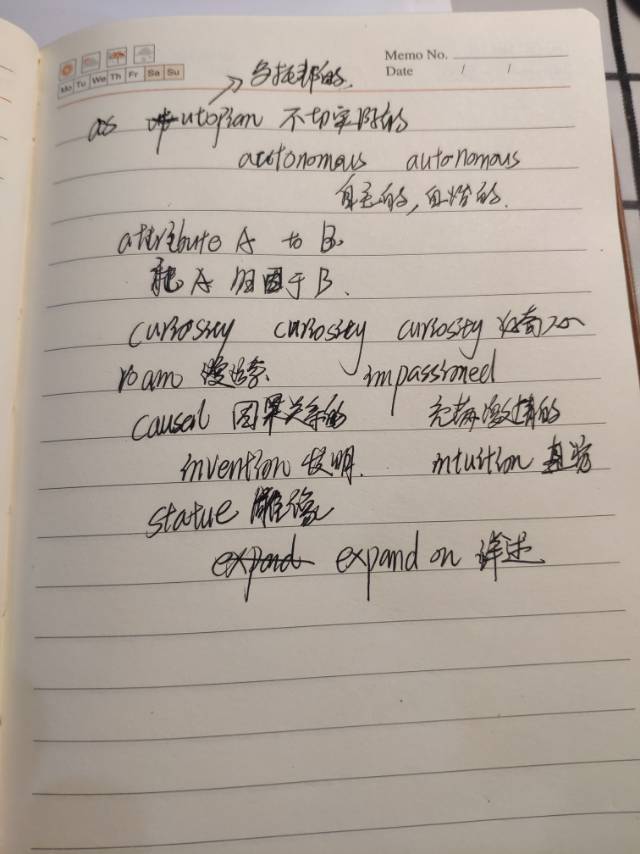 Mo Tu We Th Fr Sa Su
Memo No.
Date / /
乌托邦的
as utopian 不切实际的
autonomous autonomous
自主的,自治的.
attribute A to B.
把A归因于B.
curiosity curiosity curiosity 好奇心
roam 漫游 impassioned
causal 因果关系的 充满激情的
invention 发明. intuition 直觉
statue 雕像
expand expand on 详述